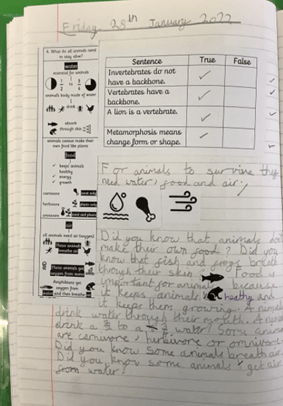 Friday 28th January 2022
4. What do all animals need
to stay alive?
water
essential for animals
animals body made of water
absorb
through skin
animals cannot make their
own food like plants
food
keeps animals
healthy
energy
growth
carnivore
herbivore
omnivore
air
all animals need air (oxygen)
These animals
breathe air
These animals get
oxygen from water
Amphibians get
oxygen from
and then breathe
Sentence True False
Invertebrates do not
have a backbone. ✓
Vertebrates have a
backbone. ✓
A lion is a vertebrate. ✓
Metamorphosis means
change form or shape. ✓
For animals to survive they
need water, food and air.
Did you know that animals
make their own food? Did you
know that fish and frogs breath
through their skin Food is
important for animals because
it keeps animals healthy and
it keeps them growing.
drink water through their mouth.
drink a water. Some animals
are carnivore, herbivore or omnivore
Did you know Some animals breath air
Did you know some animals get air
from water.